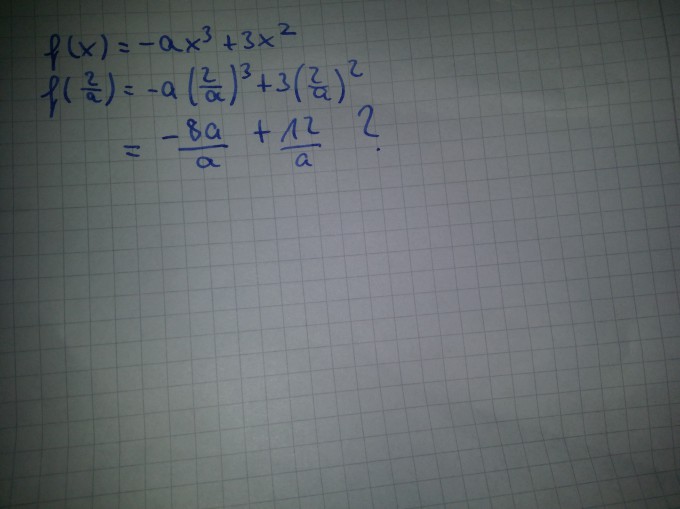 f(x) = -ax³ + 3x²
f(2/a) = -a(2/a)³ + 3(2/a)²
= -8a/a + 12/a ?